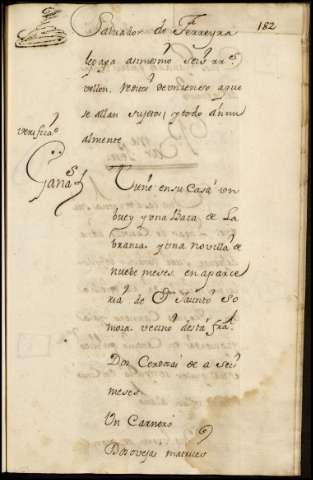 182
Salvador de Ferreyra
le paga asimismo seis rr.s
vellon,
se allan sujetos, y todo anual
almente
verificaz.n
Ganad.s
Tiene en su Casa un
buey y una Baca de La
branza y una novilla de
nuebe meses en aparce
ria de D.n Jacinto So
moza vecino desta fra.
Dos Cerdos de a seis
meses
Un Carnero
Dos ovejas matrices